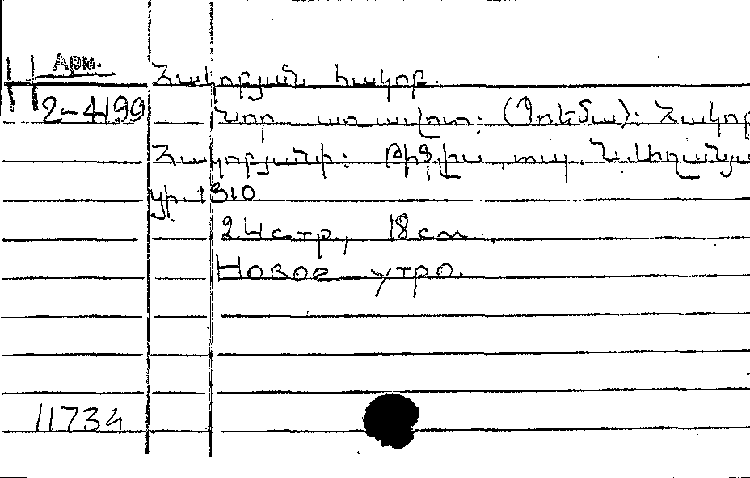 Арм.
Н Հակոբյան Հակոբ.
2-4199 Նոր առավոտ: (Պոեմա): Հակոբ
Հակոբյանի: Թիֆլիս, տպ. Ն. Աղանյա
ցի. 1910
24 стр, 18 cm.
Новое утро.
11734